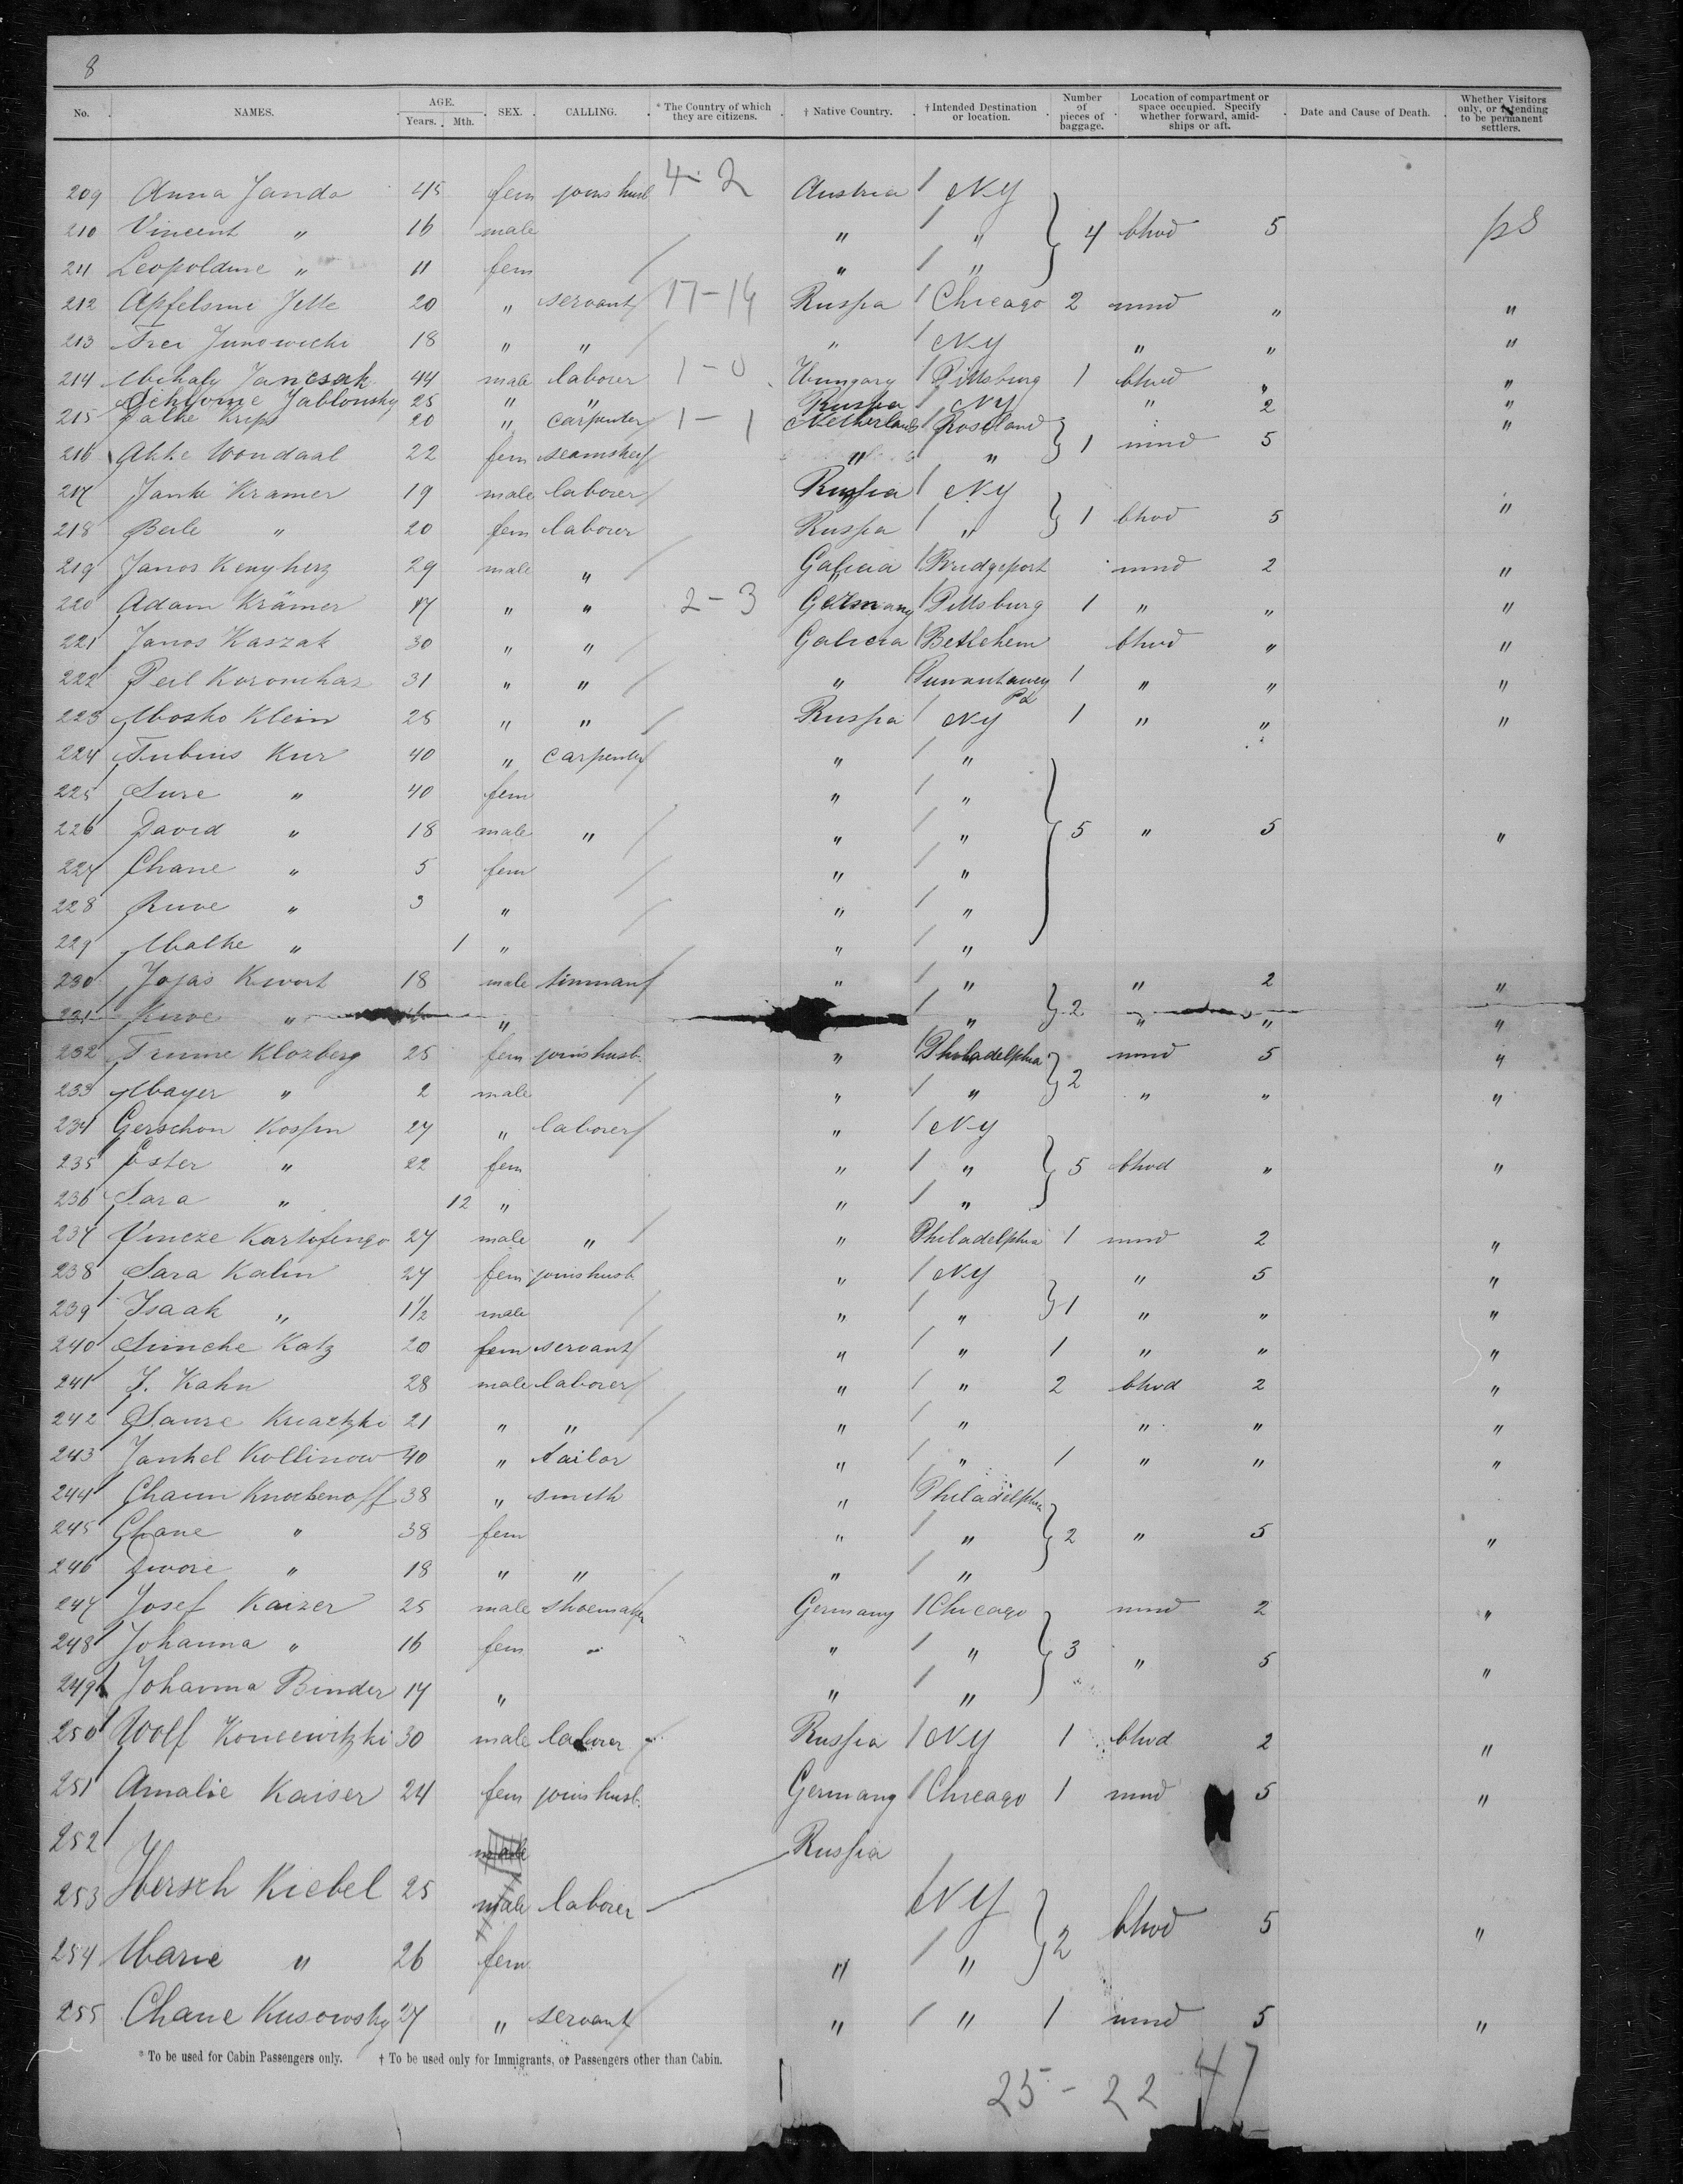 8
No. NAMES. AGE. Years. Mth. SEX. CALLING. * The Country of which they are citizens. † Native Country. † Intended Destination or location. Number of pieces of baggage. Location of compartment or space occupied. Specify whether forward, amidships or aft. Date and Cause of Death. Whether Visitors only, or intending to be permanent settlers.
209 Anna Janda 45 fem joins husb 4-2 Austria / NY
210 Vincent " 16 male " / " 4 bhvd 5 ps
211 Leopoldine " 11 fem " / "
212 Apfelsine Jette 20 " servant 17-14 Russia / Chicago 2 mmd " "
213 Frei Junowicki 18 " " " / NY " " "
214 Mihaly Jancsak 44 male laborer 1-0 Hungary / Pittsburg 1 bhvd " "
Schlome Jablonsky 25 " " Russia / NY " 2 "
215 Falke Krips 20 " carpenter 1-1 Netherlands / Roseland "
216 Akke Wondaal 22 fem seamstress " " 1 mmd 5
217 Jank Kramer 19 male laborer Russia / NY "
218 Beile " 20 fem laborer Russia / " 1 bhvd 5
219 Janos Kenyherz 29 male " Galicia / Bridgeport mmd 2 "
220 Adam Krämer 17 " " 2-3 Germany / Pittsburg 1 " " "
221 Janos Kaszak 30 " " Galicia / Bethlehem bhvd " "
222 Peil Koromhaz 31 " " " 1 " " "
Pa
223 Mosko Klein 25 " " Russia / NY 1 " " "
224 Kur 40 " carpenter " / "
225 Sure " 40 fem " / "
226 David " 18 male " " / " 5 " 5 "
227 Chane " 5 fem " / "
228 Ruwe " 3 " " / "
229 Malke " 1 " " / "
230 Kwort 18 male tinman " / " " 2 "
231 " " / " 2 " " "
232 Frume Klozberg 25 fem joins husb. " Philadelphia mmd 5 "
233 Mayer " 2 male " / " 2 " " "
234 Gerschon Kossin 27 " laborer " / NY
235 Ester " 22 fem " / " 5 bhvd " "
236 Sara " 12 " " / "
237 Vincze Kartofengo 27 male " " Philadelphia 1 mmd 2 "
238 Sara Kalin 27 fem joins husb. " / NY " 5 "
239 Isaak " 1½ male " / " 1 " " "
240 Simche Katz 20 fem servant " / " 1 " " "
241 J. Kahn 28 male laborer " / " 2 bhvd 2 "
242 21 " " " / " " " "
243 Jankel Kollinow 40 " tailor " / " 1 " " "
244 Chaim 38 " smith " Philadelphia
245 Chane " 38 fem " / " 2 " 5 "
246 Dwore " 18 " " " / "
247 Josef Kaizer 25 male shoemaker Germany / Chicago mmd 2 "
248 Johanna " 16 fem " / " 3 " 5
249 Johanna Binder 17 " " / " "
250 Wolf Koncewitzki 30 male laborer Russia / NY 1 bhvd 2 "
251 Amalie Kaiser 24 fem joins husb. Germany / Chicago 1 mmd 5 "
252 male Russia
253 Hersch Kiebel 25 male laborer NY 2 bhvd 5 "
254 Marie " 26 fem " / "
255 Chane Kusowsky 27 " servant " / " 1 mmd 5 "
* To be used for Cabin Passengers only. † To be used only for Immigrants, or Passengers other than Cabin.
25-22 47